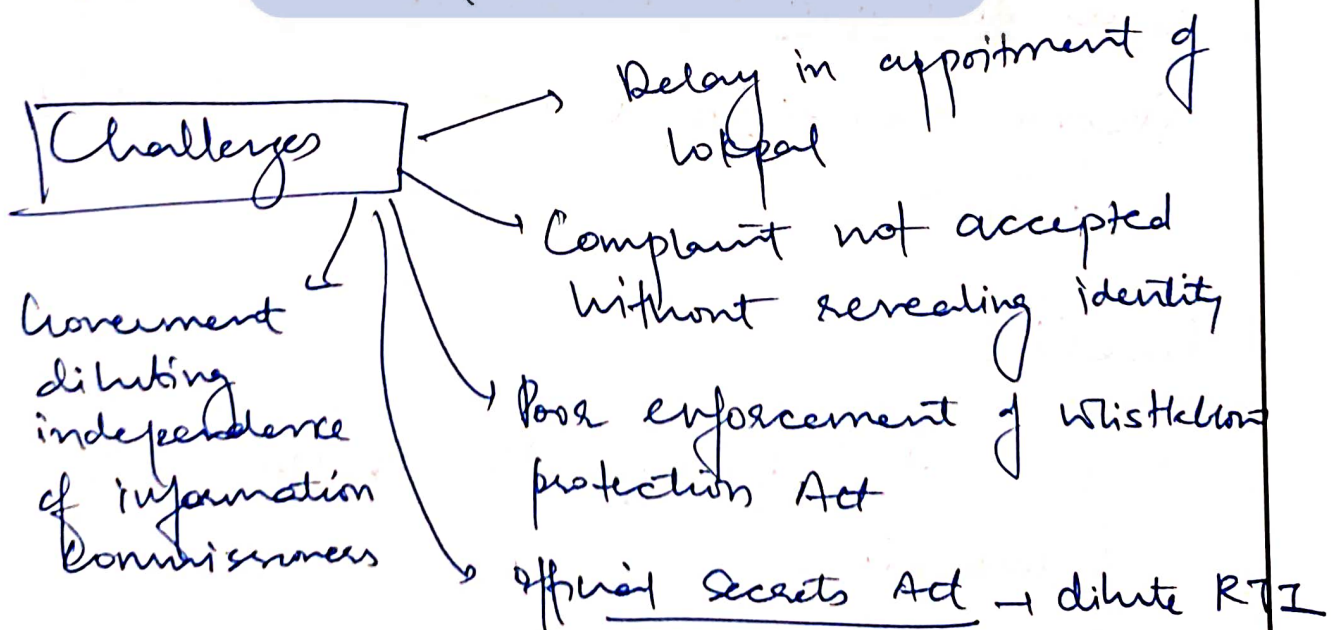 Challenges
Delay in appoitment of
Lokpal
Complaint not accepted
without revealing identity
Poor enforcement of
protection Act
Official Secrets Act → dilute RTI
Government
diluting
independence
of information
Commissioners